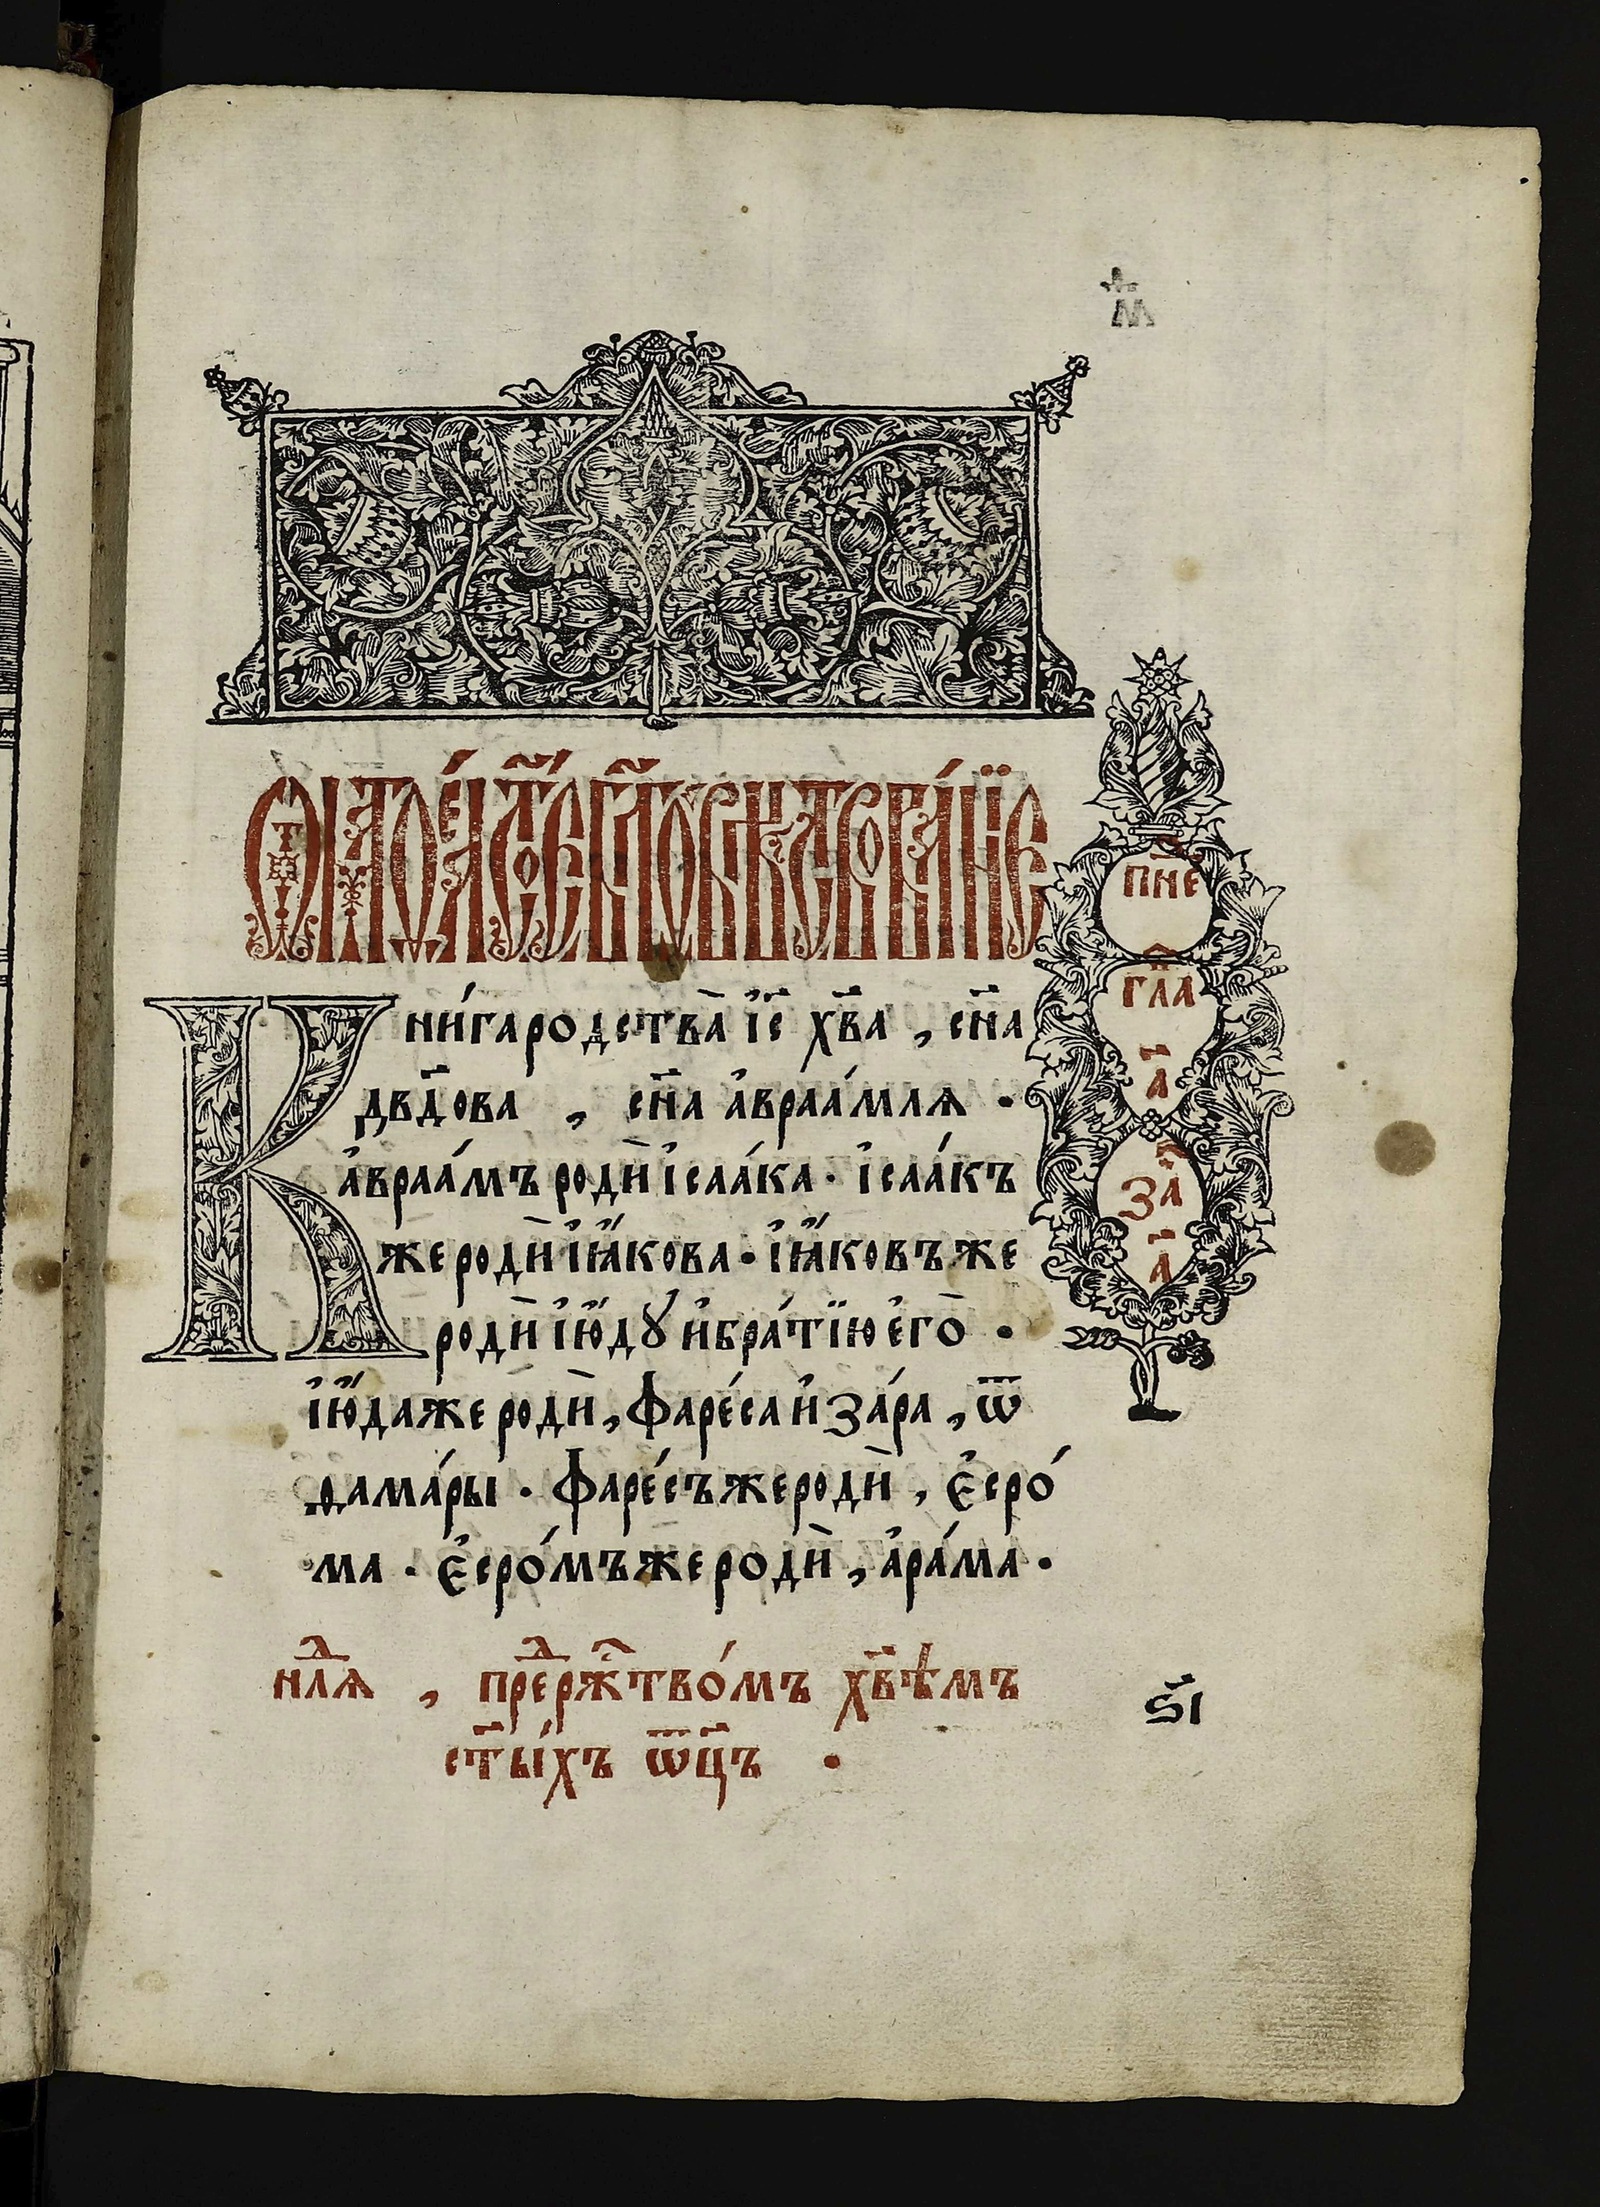 Ѿ матѳе́а ст҃о́е бл҃говѣствова́нїе
пн҃е
гла̑
а҃
за̑
а҃
Кни́га родства̀ і҆с҃ х҃ва , сн҃а
дв҃дова , сн҃а а҆враа́млѧ ·
а҆враа́мъ родѝ і҆саа́ка · і҆саа́къ
же родѝ і҆а́кова · і҆а́ковъ же
родѝ і҆ю́дꙋ и҆ бра́тїю е҆го̀ ·
і҆ю́да же родѝ , фаре́са и҆ за́ра , ѿ
ѳама́ры · фаре́съ же родѝ , є҆сро́
ма · є҆сро́мъ же родѝ , а҆ра́ма ·
нлⷣѧ , преⷣ ржⷭ҇тво́мъ х҃вѣмъ
ст҃ы́хъ ѿц҃ъ ·
ѕ҃і